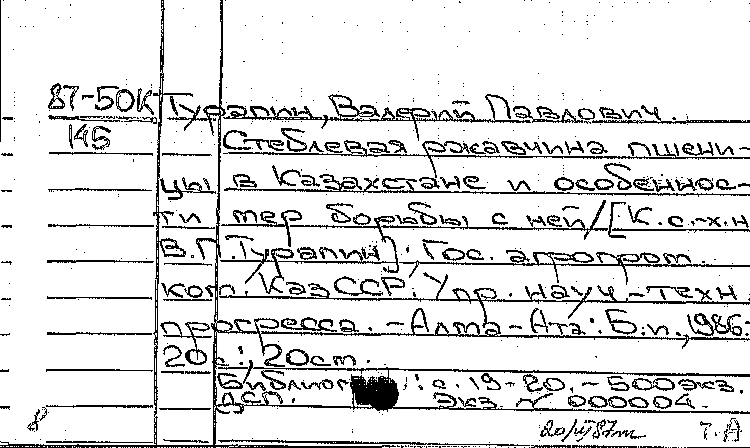 87-50К Турапин, Валерий Павлович.
145 Стеблевая ржавчина пшени-
цы в Казахстане и особеннос-
ти мер борьбы с ней/[К.с.-х.н
В.П.Турапин]; Гос. агропром.
ком. КазССР. Упр. науч.-техн.
прогресса. - Алма-Ата: Б.и., 1986.
20с.; 20см.
: с. 19-20. - 500экз.
ДСП. Экз. № 000004.
8 87 Т.А